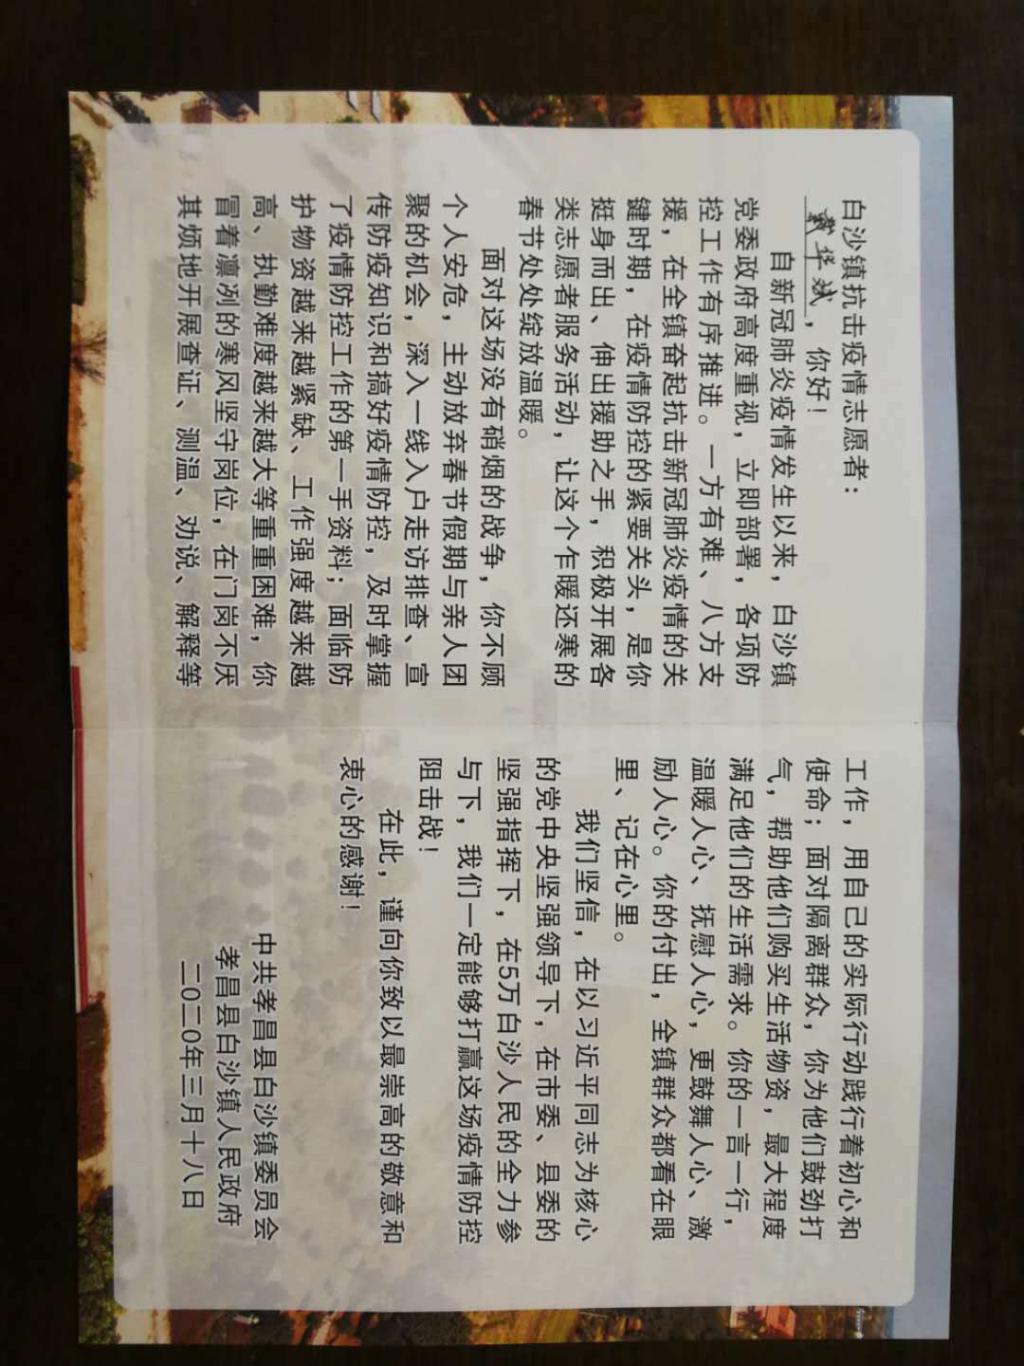 白沙镇抗击疫情志愿者：
戴华斌，你好！
自新冠肺炎疫情发生以来，白沙镇
党委政府高度重视，立即部署，各项防
控工作有序推进。一方有难、八方支
援，在全镇奋起抗击新冠肺炎疫情的关
键时期，在疫情防控的紧要关头，是你
挺身而出、伸出援助之手，积极开展各
类志愿者服务活动，让这个乍暖还寒的
春节处处绽放温暖。
面对这场没有硝烟的战争，你不顾
个人安危，主动放弃春节假期与亲人团
聚的机会，深入一线入户走访排查、宣
传防疫知识和搞好疫情防控，及时掌握
了疫情防控工作的第一手资料；面临防
护物资越来越紧缺、工作强度越来越
高、执勤难度越来越大等重重困难，你
冒着凛冽的寒风坚守岗位，在门岗不厌
其烦地开展查证、测温、劝说、解释等
工作，用自己的实际行动践行着初心和
使命；面对隔离群众，你为他们鼓劲打
气，帮助他们购买生活物资，最大程度
满足他们的生活需求。你的一言一行，
温暖人心、抚慰人心，更鼓舞人心、激
励人心。你的付出，全镇群众都看在眼
里、记在心里。
我们坚信，在以习近平同志为核心
的党中央坚强领导下，在市委、县委的
坚强指挥下，在5万白沙人民的全力参
与下，我们一定能够打赢这场疫情防控
阻击战！
在此，谨向你致以最崇高的敬意和
衷心的感谢！
中共孝昌县白沙镇委员会
孝昌县白沙镇人民政府
二〇二〇年三月十八日